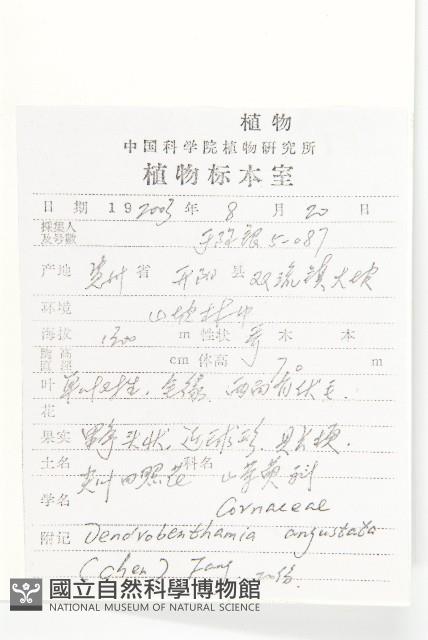 植 物
中国科学院植物研究所
植物标本室
日 期 19 2003 年 8 月 20 日
採集人
及号數 5-087
产地 贵州 省 开阳 县 双流镇大坡
环境 山坡林中
海拔 1300 m 性状 乔 木 本
胸高
直徑 cm 体高 7 m
叶 单叶对生，全缘，两面有伏毛
花
果实 聚合头状，近球形，具长梗．
土名 尖叶四照花 科名 山茱萸科
学名 Cornaceae
附记 Dendrobenthamia angustata
(Chen) Fang
國立自然科學博物館
NATIONAL MUSEUM OF NATURAL SCIENCE